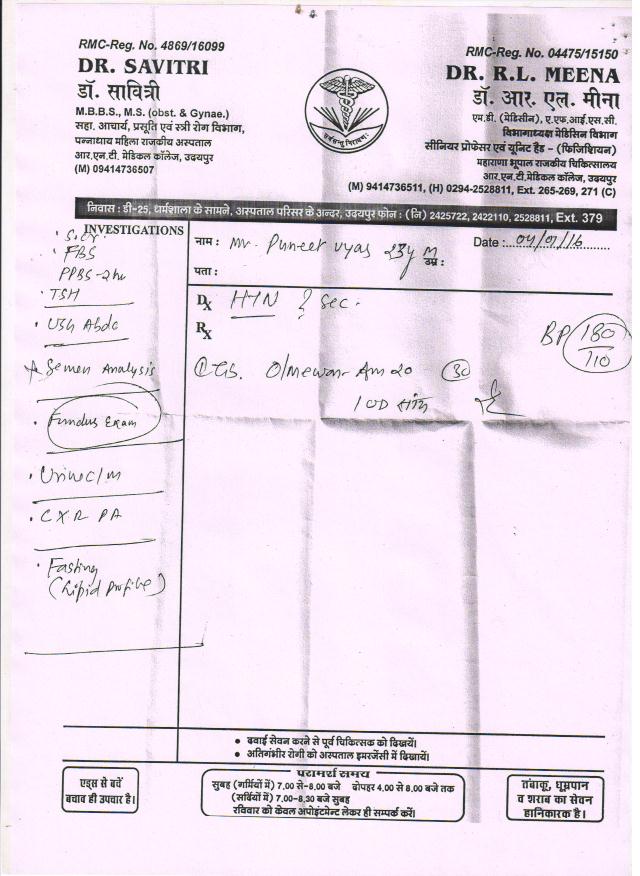 RMC-Reg. No. 4869/16099
DR. SAVITRI
डॉ. सावित्री
M.B.B.S., M.S. (obst. & Gynae.)
सहा. आचार्य, प्रसूति एवं स्त्री रोग विभाग,
पन्नाधाय महिला राजकीय अस्पताल
आर.एन.टी. मेडिकल कॉलेज, उदयपुर
(M) 09414736507
RMC-Reg. No. 04475/15150
DR. R.L. MEENA
डॉ. आर. एल. मीना
एम.डी. (मेडिसीन), ए.एफ.आई.एस.सी.
विभागाध्यक्ष मेडिसिन विभाग
सीनियर प्रोफेसर एवं यूनिट हैड – (फिजिशियन)
महाराणा भूपाल राजकीय चिकित्सालय
आर.एन.टी.मेडिकल कॉलेज, उदयपुर
(M) 9414736511, (H) 0294-2528811, Ext. 265-269, 271 (C)
निवास : डी-25, धर्मशाला के सामने, अस्पताल परिसर के अन्दर, उदयपुर फोन : (नि) 2425722, 2422110, 2528811, Ext. 379
INVESTIGATIONS
S. Cr.
FBS
PPBS-2hr
TSH
USG Abdo
Semen Analysis
Fundus Exam
Urine c/m
CXR PA
Fasting
(Lipid Profile)
नाम : Mr. Puneet Vyas 23y M
उम्र :
Date : 04/07/16
पता :
Dx HTN ? Sec.
Rx
BP 180/110
① Tb. Olmewin-Am 20 (30)
1 OD
दवाई सेवन करने से पूर्व चिकित्सक को दिखायें।
अतिगंभीर रोगी को अस्पताल इमरजेंसी में दिखायें।
एड्स से बचें
बचाव ही उपचार है।
परामर्श समय
सुबह (गर्मियों में) 7.00 से-8.00 बजे दोपहर 4.00 से 8.00 बजे तक
(सर्दियों में) 7.00-8.30 बजे सुबह
रविवार को केवल अपोइंटमेन्ट लेकर ही सम्पर्क करें।
तंबाकू, धूम्रपान
व शराब का सेवन
हानिकारक है।